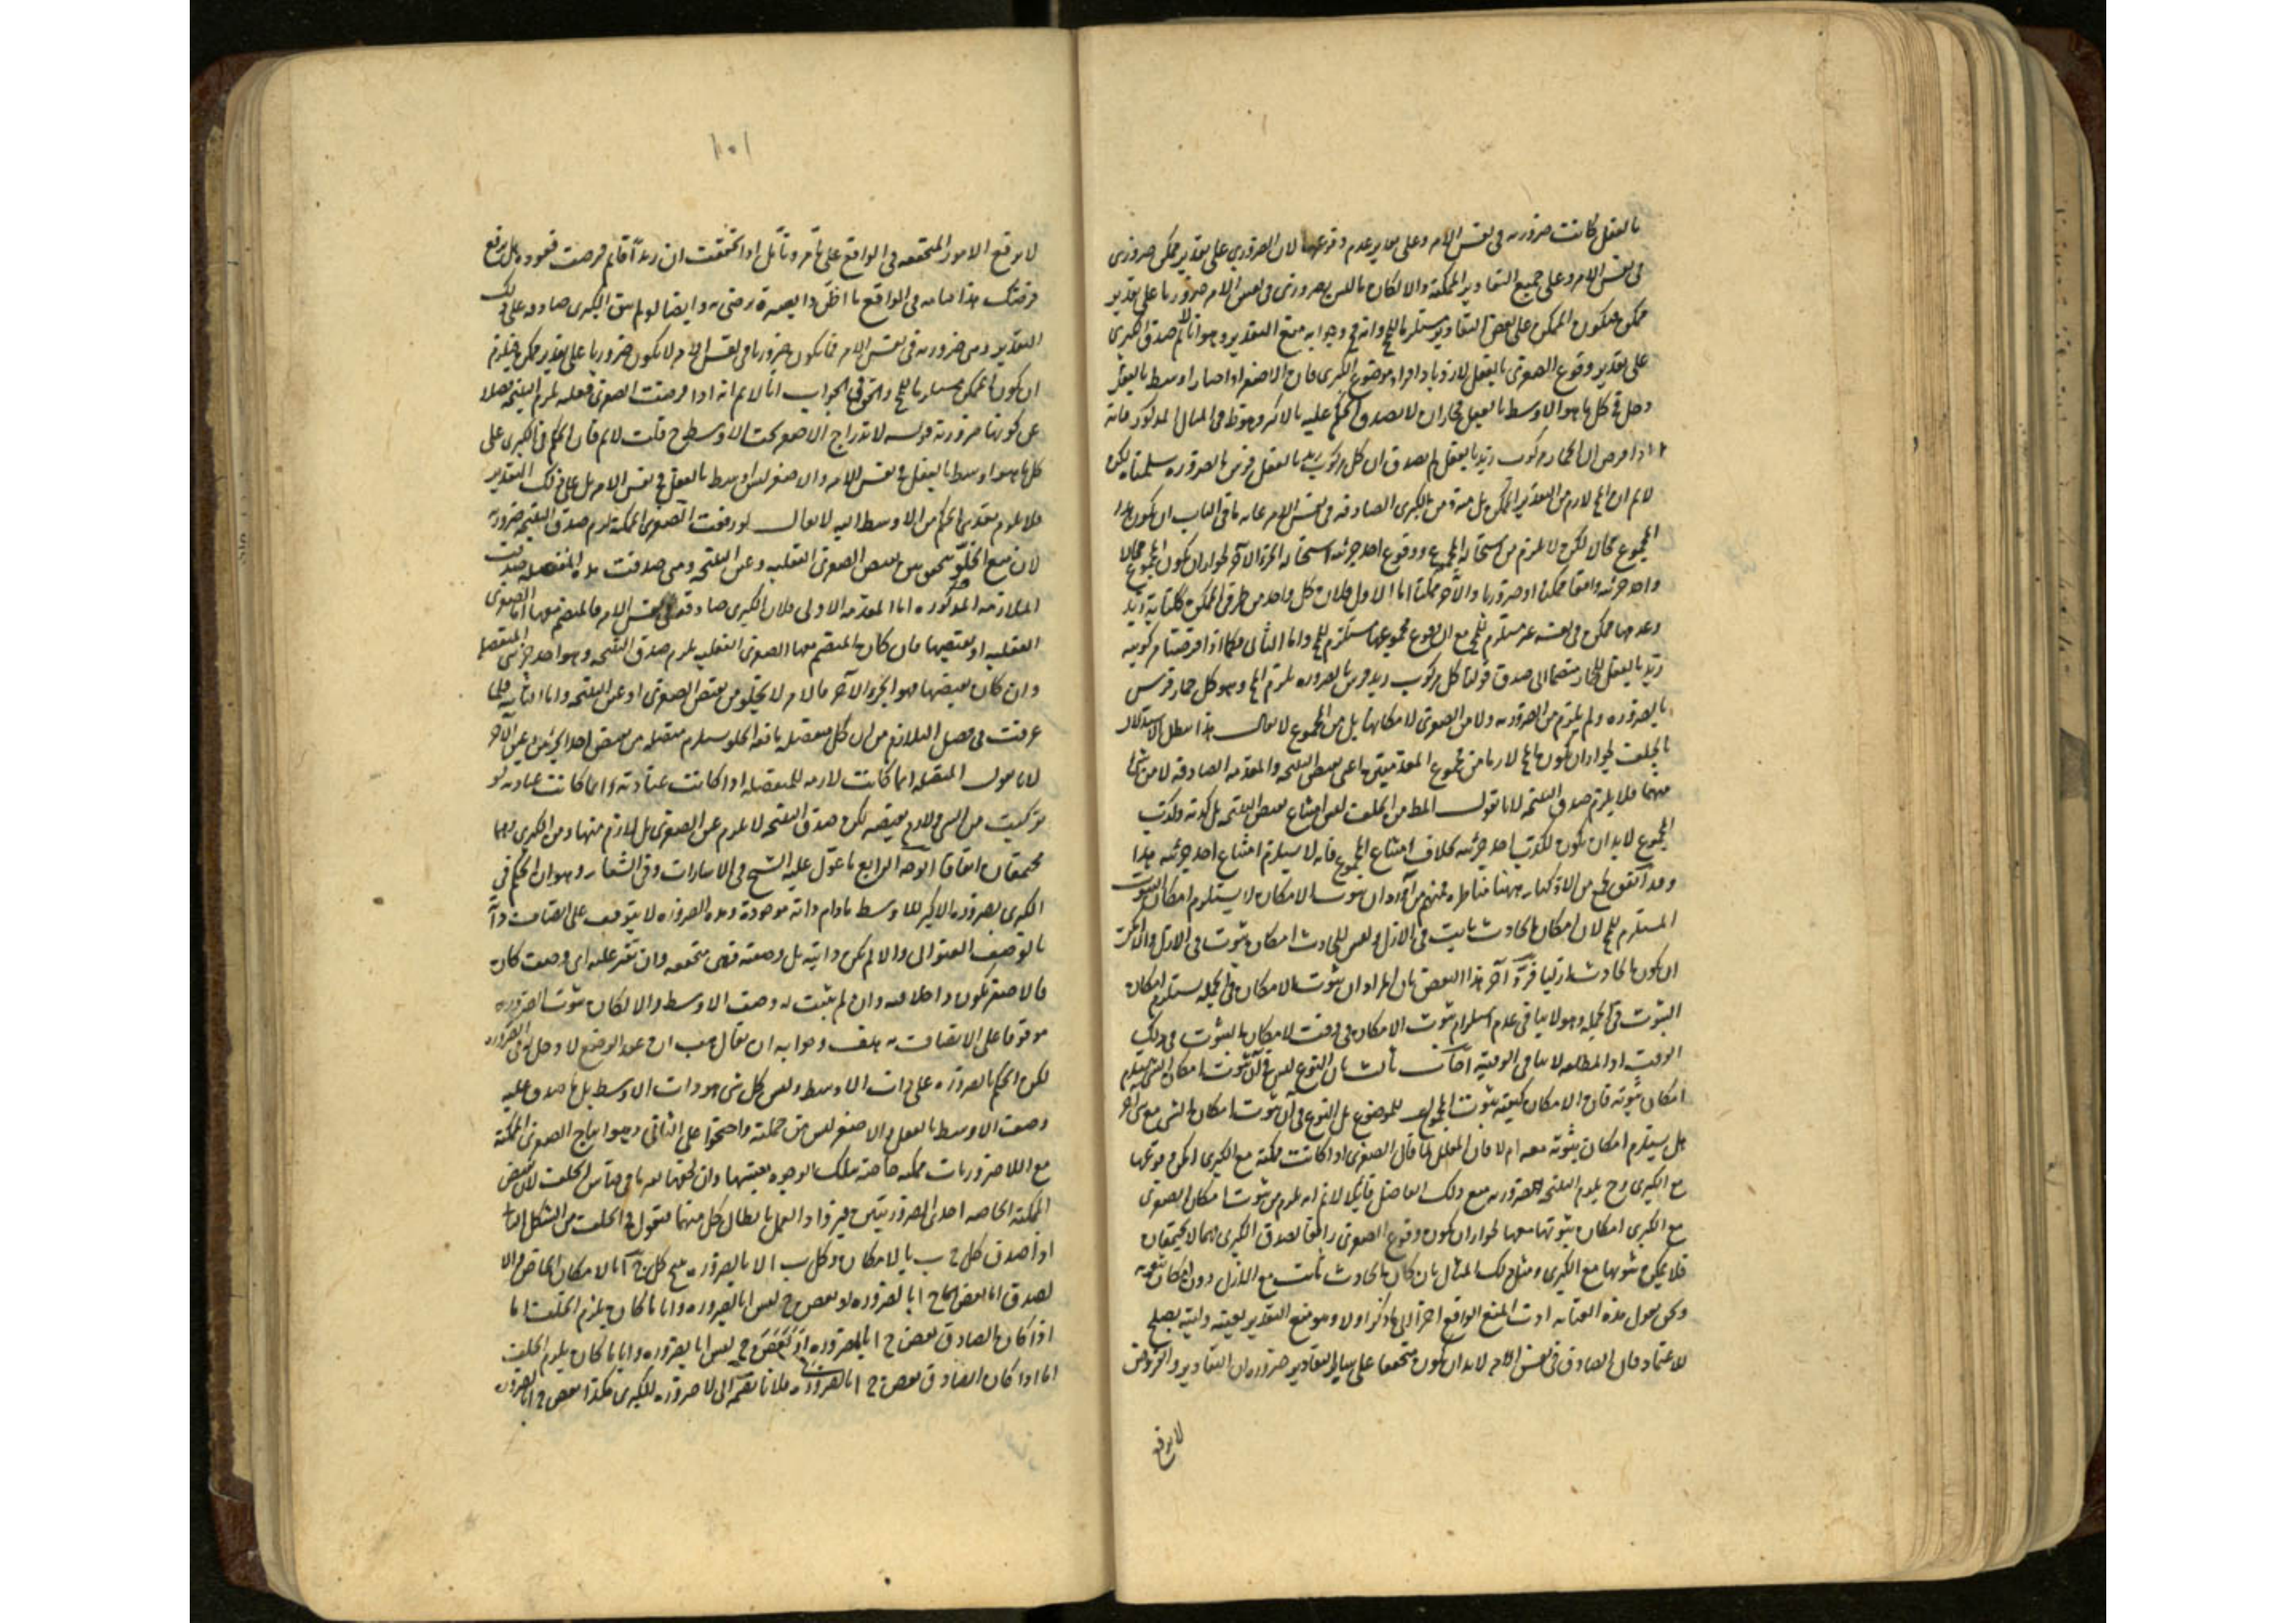 بالفعل كانت ضرورية فى نفس الامر وعلى تقدير عدم وقوعها لان الضرورى على تقدير ممكن ضرورى
فى نفس الامر وعلى جميع التقادير الممكنة والا لكان ما ليس بضرورى فى نفس الامر ضروريا على تقدير
ممكن فيكون الممكن على بعض التقادير مستلزما للمح وانه مح وجوابه منع التقدير وهو انا لانم صدق الكبرى
على تقدير وقوع الصغرى بالفعل لازدياد افراد موضوع الكبرى فان الاصغر اذا صار اوسط بالفعل
دخل فى كل ما هو الاوسط بالفعل فجاز ان لا يصدق الحكم عليه بالاكبر وهو ظ فى المثال المذكور فانه
اذا فرض ان الحمار مركوب زيد بالفعل لم يصدق ان كل مركوب زيد بالفعل فرس بالضرورة سلمنا لكن
لانم ان المح لازم من التقدير الممكن بل منه ومن الكبرى الصادقة فى نفس الامر غاية ما فى الباب ان يكون هذا
المجموع محال لكن لا يلزم من استحالة المجموع ووقوع احد جزئيه استحالة الجزء الآخر لجواز ان يكون المجموع محالا
واحد جزئيه واقعا ممكنا او ضروريا والآخر ممكنا اما الاول فلان كل واحد من طرفى الممكن ككتابة زيد
وعدمها ممكن فى نفسه غير مستلزم للمح مع ان وقوع مجموعهما مستلزم للمح واما الثانى فكما اذا فرضنا مركوبية
زيد بالفعل للحمار منضما الى صدق قولنا كل مركوب زيد فرس بالضرورة يلزم المح وهو كل حمار فرس
بالضرورة ولم يلزم من الضرورية ولا من الصغرى لامكانها بل من المجموع لا يقال هذا يبطل الاستدلال
بالخلف لجواز ان يكون المح لازما من مجموع المقدمتين اعنى نقيض النتيجة والمقدمة الصادقة لا من شئ
منهما فلا يلزم صدق النتيجة لانا نقول المط من الخلف ليس امتناع نقيض النتيجة بل كذبه وكذب
المجموع لابد ان يكون لكذب احد جزئيه بخلاف امتناع المجموع فانه لا يستلزم امتناع احد جزئيه هذا
وقد اتفق لجمع من الاذكياء ههنا مناظرة فمنهم من آم ان ثبوت الامكان لا يستلزم امكان الثبوت
المستلزم للمح لان امكان الحادث ثابت فى الازل وليس للحادث امكان ثبوت فى الازل والا امكن
ان يكون الحادث ازليا فرد آخر هذا النقض بان المراد ان ثبوت الامكان فى الجملة يستلزم امكان
الثبوت فى الجملة وهو لا ينافى عدم استلزام ثبوت الامكان فى وقت لامكان الثبوت فى ذلك
الوقت اذ المطلقة لا ينافى الوقتية اجاب ثالث بان النزاع ليس فى ان ثبوت امكان الشئ يستلزم
امكان ثبوته فان الامكان كيفية ثبوت المحمول للموضوع بل النزاع فى ان ثبوت امكان الشئ مع شئ آخر
هل يستلزم امكان ثبوته معه ام لا فان المعلل لما قال الصغرى اذا كانت ممكنة مع الكبرى امكن وقوعها
مع الكبرى وح يلزم النتيجة الضرورية منع ذلك الفاضل قائلا لانم انه يلزم من ثبوت امكان الصغرى
مع الكبرى امكان ثبوتها معها لجواز ان يكون وقوع الصغرى رافعا لصدق الكبرى فهما لا يجتمعان
فلا يمكن ثبوتها مع الكبرى ومثل ذلك المثال بان امكان الحادث ثابت مع الازل دون امكان ثبوته
ونحن نقول هذه العناية ادت المنع الواقع اخرا الى ما ذكر اولا وهو منع التقدير بعينه وليته يصلح
للاعتماد فان الصادق فى نفس الامر لابد ان يكون متحققا على سائر التقادير ضرورة ان التقادير والفروض
لا يرفع
١٠١
لا يرفع الامور المتحققة فى الواقع على ما مر وتأمل اذا تحققت ان زيدا قائم فرضت قعوده هل يرفع
فرضك هذا قيامه فى الواقع ما اظن ذا بصيرة يرضى به وايضا لو لم يبق الكبرى صادقة على ذلك
التقدير وهى ضرورية فى نفس الامر فما يكون ضروريا فى نفس الامر لا يكون ضروريا على تقدير ممكن فيلزم
ان يكون الممكن مستلزما للمح والحق فى الجواب انا لانم انه اذا فرضت الصغرى فعلية يلزم النتيجة فضلا
عن كونها ضرورية قوله لاندراج الاصغر تحت الاوسط ح قلت لانم فان الحكم فى الكبرى على
كل ما هو اوسط بالفعل فى نفس الامر والاصغر ليس اوسط بالفعل فى نفس الامر بل على ذلك التقدير
فلا يلزم تعدى الحكم من الاوسط اليه لا يقال لو صدقت الصغرى الممكنة لزم صدق النتيجة ضرورية
لان منع الخلو متحقق بين نقيض الصغرى الفعلية وعين النتيجة ومتى صدقت هذه المنفصلة صدقت
الملازمة المذكورة اما المقدمة الاولى فلان الكبرى صادقة فى نفس الامر فالمنضم معها اما الصغرى
الفعلية او نقيضها فان كان المنضم معها الصغرى الفعلية يلزم صدق النتيجة وهو احد جزئى المنفصلة
وان كان نقيضها فهو الجزء الآخر فالامر لا يخلو من نقيض الصغرى او عين النتيجة واما الثانية فلما
عرفت فى فصل التلازم من ان كل منفصلة مانعة الخلو يستلزم متصلة من نقيض احد الجزئين وعين الآخر
لانا نقول المتصلة انما كانت لازمة للمنفصلة اذا كانت عنادية وانما كانت عنادية لو
تركبت من الشئ ولازم نقيضه لكن صدق النتيجة لا يلزم عين الصغرى بل لازم منها ومن الكبرى وهما
مجتمعان اتفاقا الوجه الرابع ما عول عليه الشيخ فى الاشارات وفى الشفاء وهو ان الحكم فى
الكبرى بضرورة الاكبر للاوسط مادام ذاته موجودة وهذه الضرورة لا يتوقف على اتصاف ذاته
بالوصف العنوانى والا لم يكن ذاتية بل وصفية فهى متحققة وان تغير عليه اى وصف كان
فالاصغر يكون داخلا فيه وان لم يثبت له وصف الاوسط والا لكان ثبوت الضرورة
موقوفا على الاتصاف به هف وجوابه ان يقال هب ان عقد الوضع لا دخل له فى الضرورة
لكن الحكم بالضرورة على ذات الاوسط وليس كل شئ هو ذات الاوسط بل ما صدق عليه
وصف الاوسط بالفعل والاصغر ليس من جملته واحتجوا على الثانى وهو انتاج الصغرى الممكنة
مع اللاضروريات ممكنة خاصة بتلك الوجوه بعينها وان لحقها تغير ما فى قياس الخلف لان نقيض
الممكنة الخاصة احدى الضروريتين فيزداد العمل بابطال كل منهما فنقول فى الخلف من الشكل الاول
اذا صدق كل ج ب بالامكان وكل ب ا لا بالضرورة صح كل ج ا بالامكان الخاص والا
لصدق اما بعض ج ا بالضرورة او بعض ج ليس ا بالضرورة وايا ما كان يلزم الخلف اما
اذا كان الصادق بعض ج ا بالضرورة او بعض ج ليس ا بالضرورة وايا ما كان يلزم الخلف
اما اذا كان الصادق بعض ج ا بالضرورة فلانا نضمه الى لا ضرورة الكبرى هكذا بعض ج ا بالضرورة